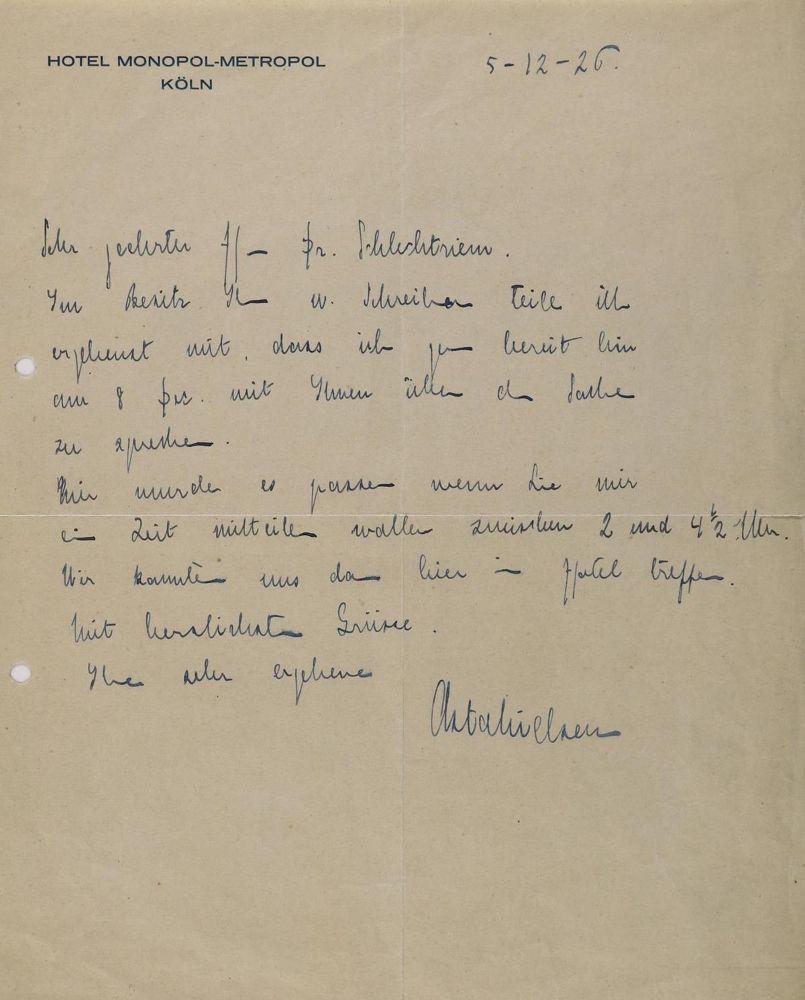 HOTEL MONOPOL-METROPOL
KÖLN
5-12-26.
Sehr geehrter Herrn Dr. Schlechtriem.
Im Besitz Ihren w. Schreiben teile ich
ergebenst mit, dass ich gern bereit bin
am 8 Dez. mit Ihnen über die Sache
zu sprechen.
Mir wurde es passen wenn Sie mir
ein Zeit mitteilen wollen zwischen 2 und 4 1/2 Uhr.
Wir konnten uns dann hier in Hotel treffen.
Mit herzlichsten Grüsse.
Ihre sehr ergebene
Asta Nielsen